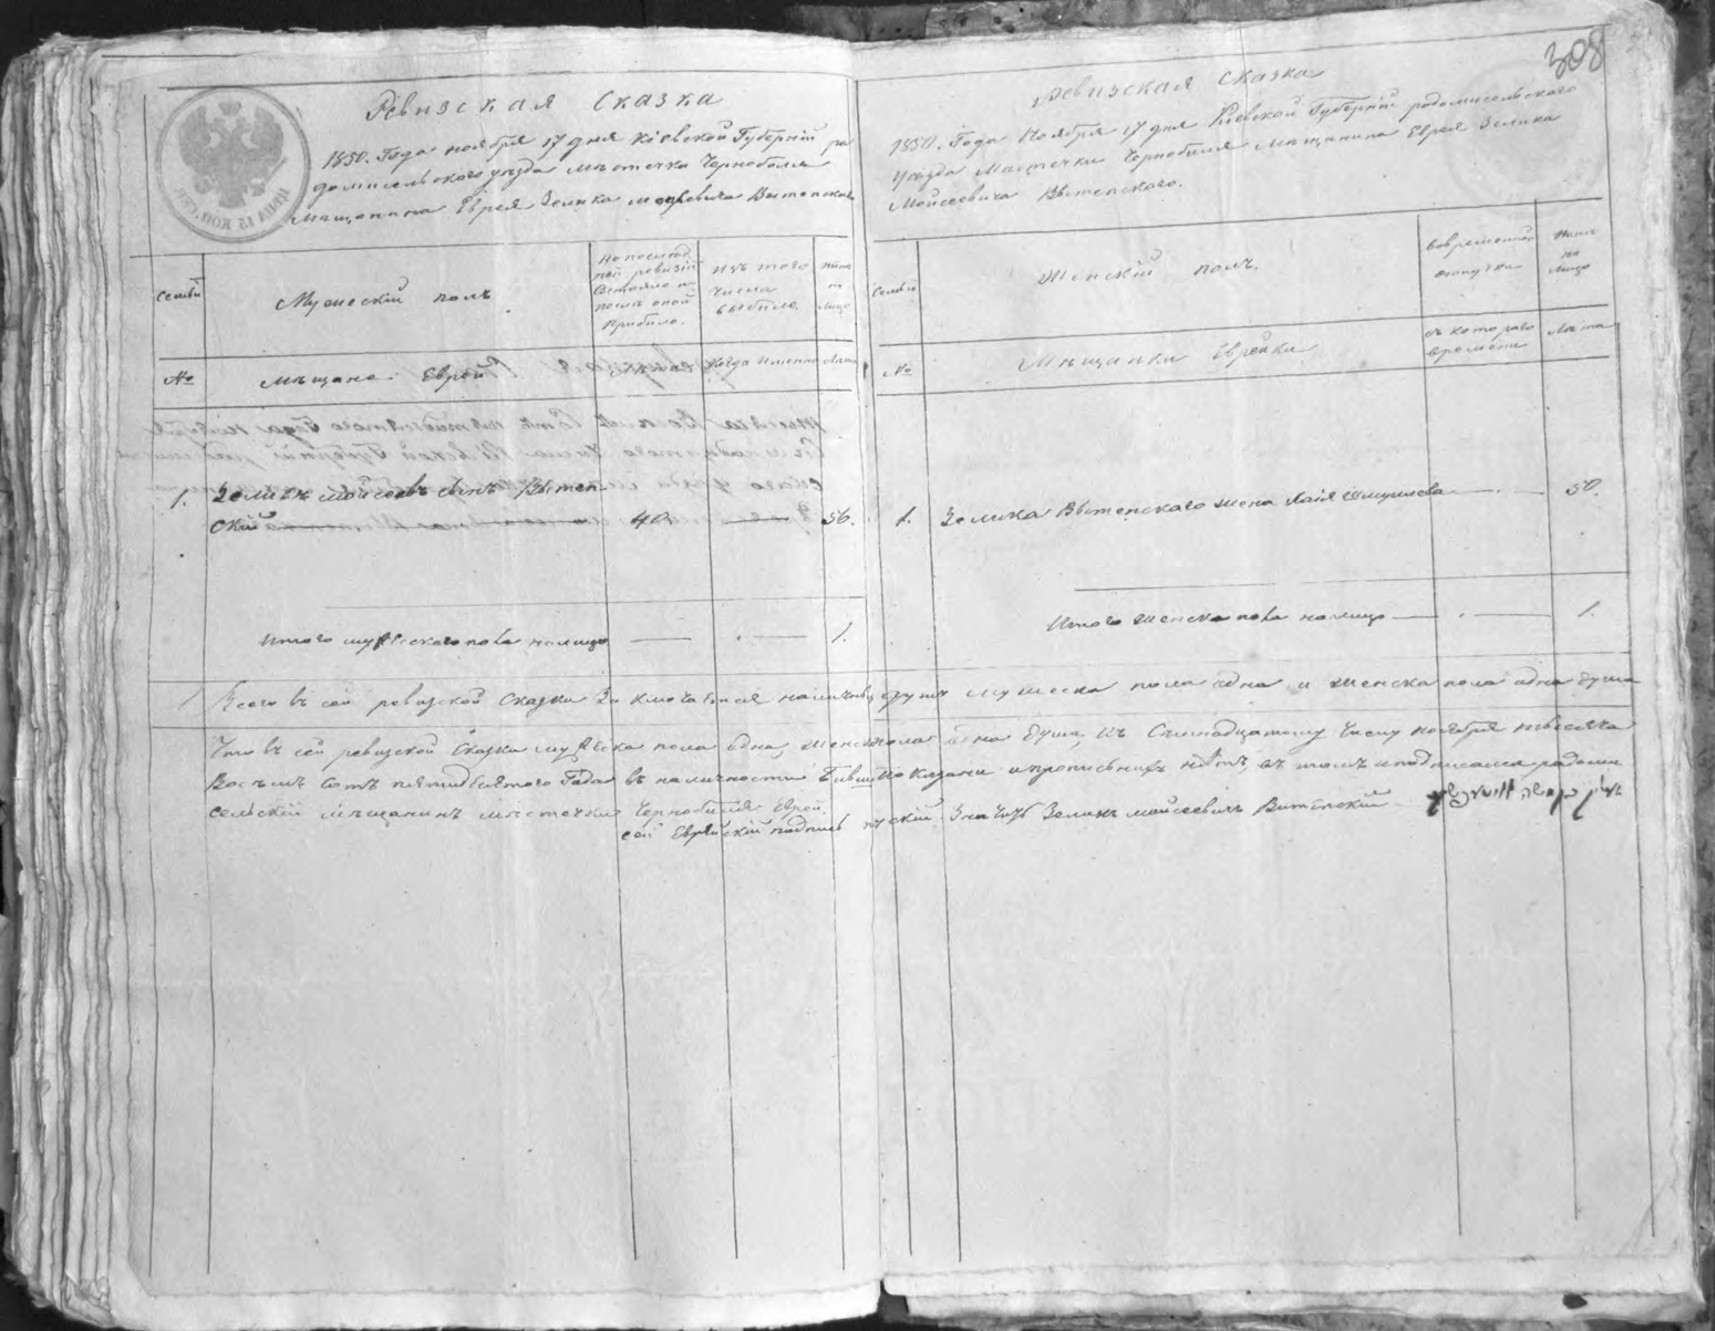 Ревизская Сказка
1850. Года ноября 17 дня Кіевской Губерніи ра
домисельского уезда местечка Чернобыля
мещанина Еврея Зелика Мойсевича Вытепского
ЦЕНА 15 КОП. СЕР.
Семьи
Мужескій полъ
По послед
ней ревизіи
Состояло и
после оной
прибыло.
Изъ того
числа
выбыло
Ныне
на
лицо
№
Мещане Евреи
Лета
Когда именно
Лета
1. Зеликъ Мойсеевъ сынъ Вытеп
скій 40 56.
Итого мужеского пола налицо 1.
308
Ревизская Сказка
1850. Года Ноября 17 дня Кіевской Губерніи радомисельского
уезда Местечка Чернобыля Мещанина Еврея Зелика
Мойсеевича Вытепского.
Семьи
Женскій полъ.
Вовременной
отлучке
Ныне
на
лицо
№
Мещанки Еврейки
съ котораго
времени
Лета
1. Зелика Вытепского жена Хая Шмулиева 50.
Итого женска пола налицо 1.
Всего въ сей ревизской Сказки Заключается наличныхъ душъ мужеска пола одна и женска пола одна душа
Что въ сей ревизской Сказки мужеска пола одна, женска пола одна душа, къ Семнадцатому Числу ноября месяца
Восемь сотъ пятидесятого Года въ наличности бывши показани и прописныхъ нетъ, въ томъ и подписался радоми
сельскій мещанинъ местечка Чернобыля Еврей
сей Еврейскій подпись руский Значитъ Зеликъ мойсеевичъ Витепскій